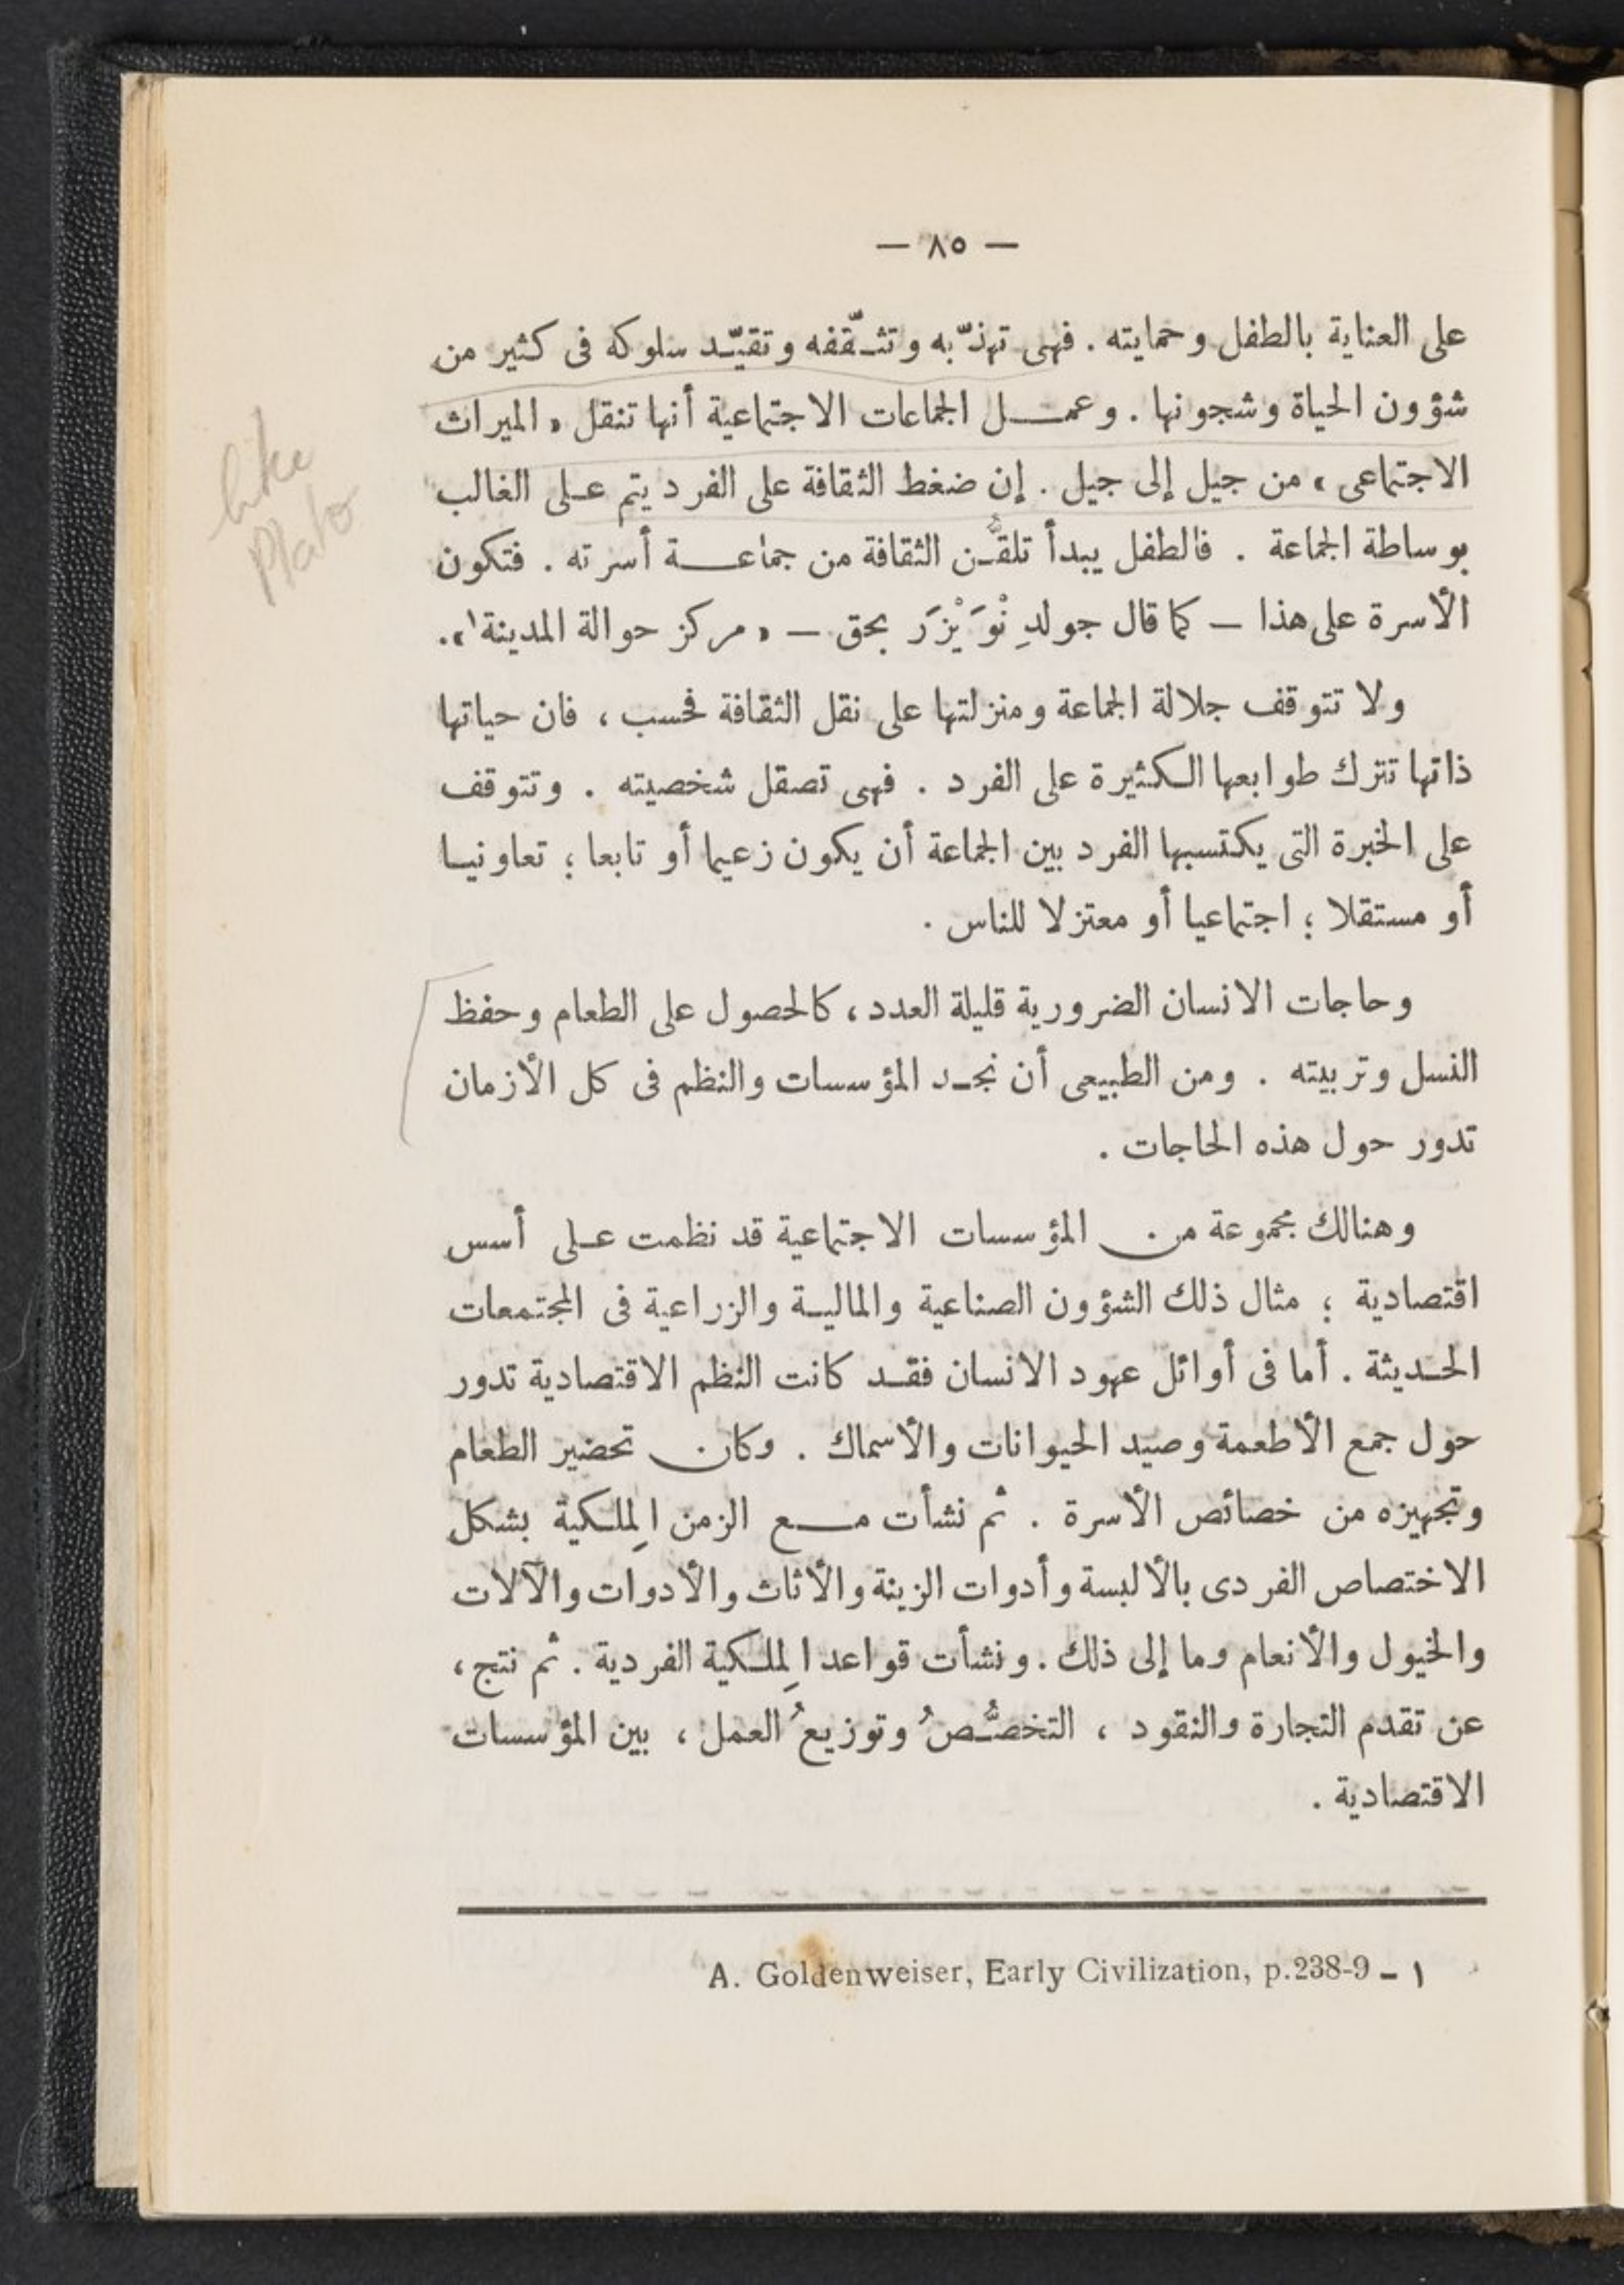 — ٨٥ —
على العناية بالطفل وحمايته . فهى تهذّبه وتثـقّفه وتقيّـد سلوكه فى كثير من
شؤون الحياة وشجونها . وعمـــل الجماعات الاجتماعية أنها تنقل « الميراث
الاجتماعى » من جيل إلى جيل . إن ضغط الثقافة على الفرد يتم عـلى الغالب
بوساطة الجماعة . فالطفل يبدأ تلقُّـن الثقافة من جماعـــة أسرته . فتكون
الأسرة على هذا — كما قال جولدِنْوَيْزَر بحق — « مركز حوالة المدينة١ » .
ولا تتوقف جلالة الجماعة ومنزلتها على نقل الثقافة فحسب ، فان حياتها
ذاتها تترك طوابعها الـكثيرة على الفرد . فهى تصقل شخصيته . وتتوقف
على الخبرة التى يكتسبها الفرد بين الجماعة أن يكون زعيما أو تابعا ؛ تعاونيـا
أو مستقلا ؛ اجتماعيا أو معتزلا للناس .
وحاجات الانسان الضرورية قليلة العدد ، كالحصول على الطعام وحفظ
النسل وتربيته . ومن الطبيعى أن نجـد المؤسسات والنظم فى كل الأزمان
تدور حول هذه الحاجات .
وهنالك مجموعة من المؤسسات الاجتماعية قد نظمت عـلى أسس
اقتصادية ؛ مثال ذلك الشؤون الصناعية والماليـة والزراعية فى المجتمعات
الحـديثة . أما فى أوائل عهود الانسان فقـد كانت النظم الاقتصادية تدور
حول جمع الأطعمة وصيد الحيوانات والأسماك . وكان تحضير الطعام
وتجهيزه من خصائص الأسرة . ثم نشأت مـــع الزمن الـمِلـكية بشكل
الاختصاص الفردى بالألبسة وأدوات الزينة والأثاث والأدوات والآلات
والخيول والأنعام وما إلى ذلك . ونشأت قواعد المِلـكية الفردية . ثم نتج ،
عن تقدم التجارة والنقود ، التخصُّـصُ وتوزيعُ العمل ، بين المؤسسات
الاقتصادية .
١ – A. Goldenweiser, Early Civilization, p.238-9
like
Plato